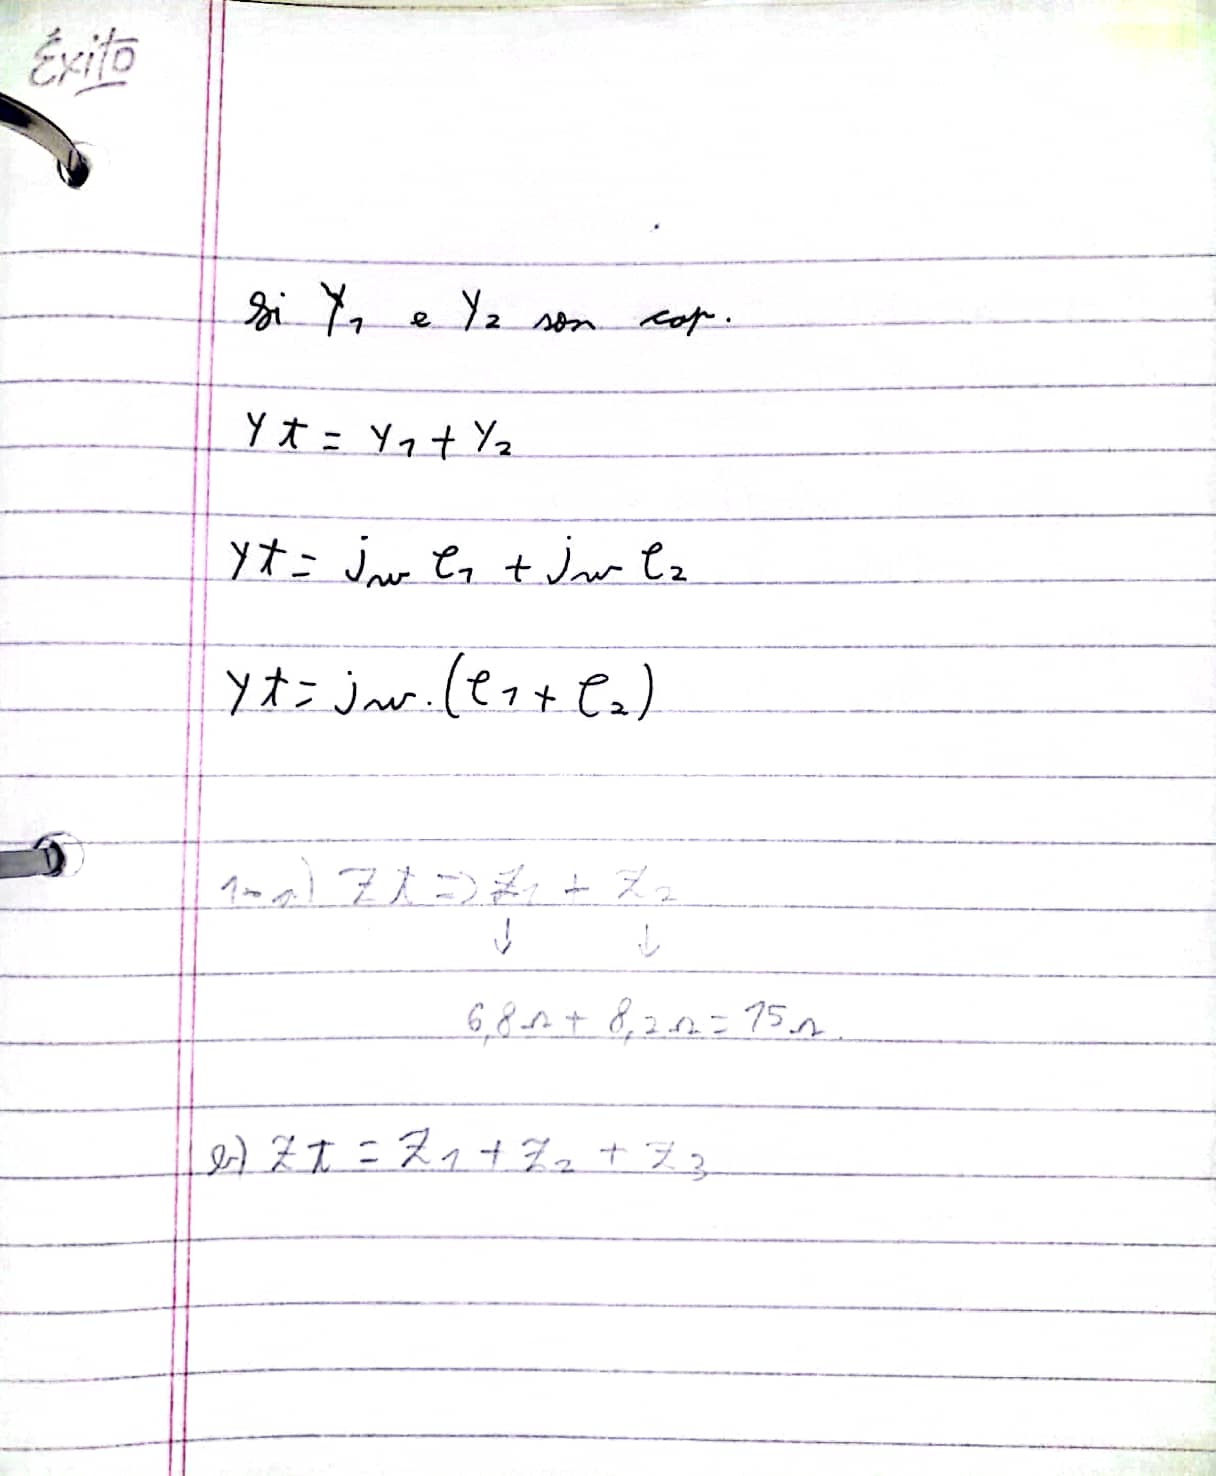 Éxito
Si Y1 e Y2 son cap.
Yt = Y1 + Y2
Yt = jw C1 + jw C2
Yt = jw.(C1 + C2)
1-a) Zt => Z1 + Z2
↓ ↓
6,8Ω + 8,2Ω = 15Ω.
b) Zt = Z1 + Z2 + Z3